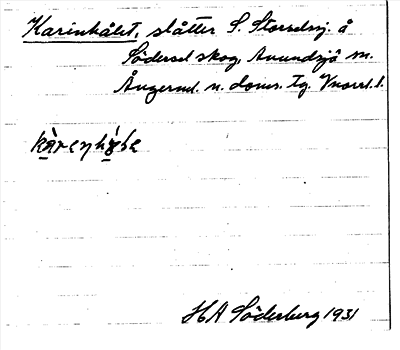 Karinhålet, slåtter S. Storselsj. å
Södersel skog, Anundsjö sn.
Ångerml. n. doms. tg. Vnorrl. l.
HA Söderberg 1931